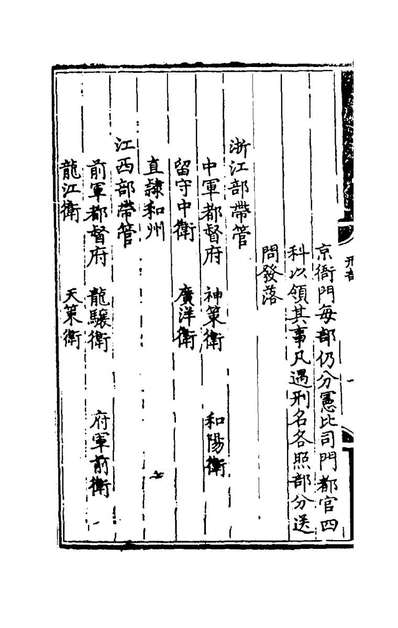 京衙門每部仍分憲比司門都官四
科以領其事凡遇刑名各照部分送
問發落
浙江部帶管
中軍都督府 神策衛 和陽衛
留守中衛 廣洋衛
直隸和州
江西部帶管
前軍都督府 龍驤衛 府軍前衛
龍江衛 天策衛